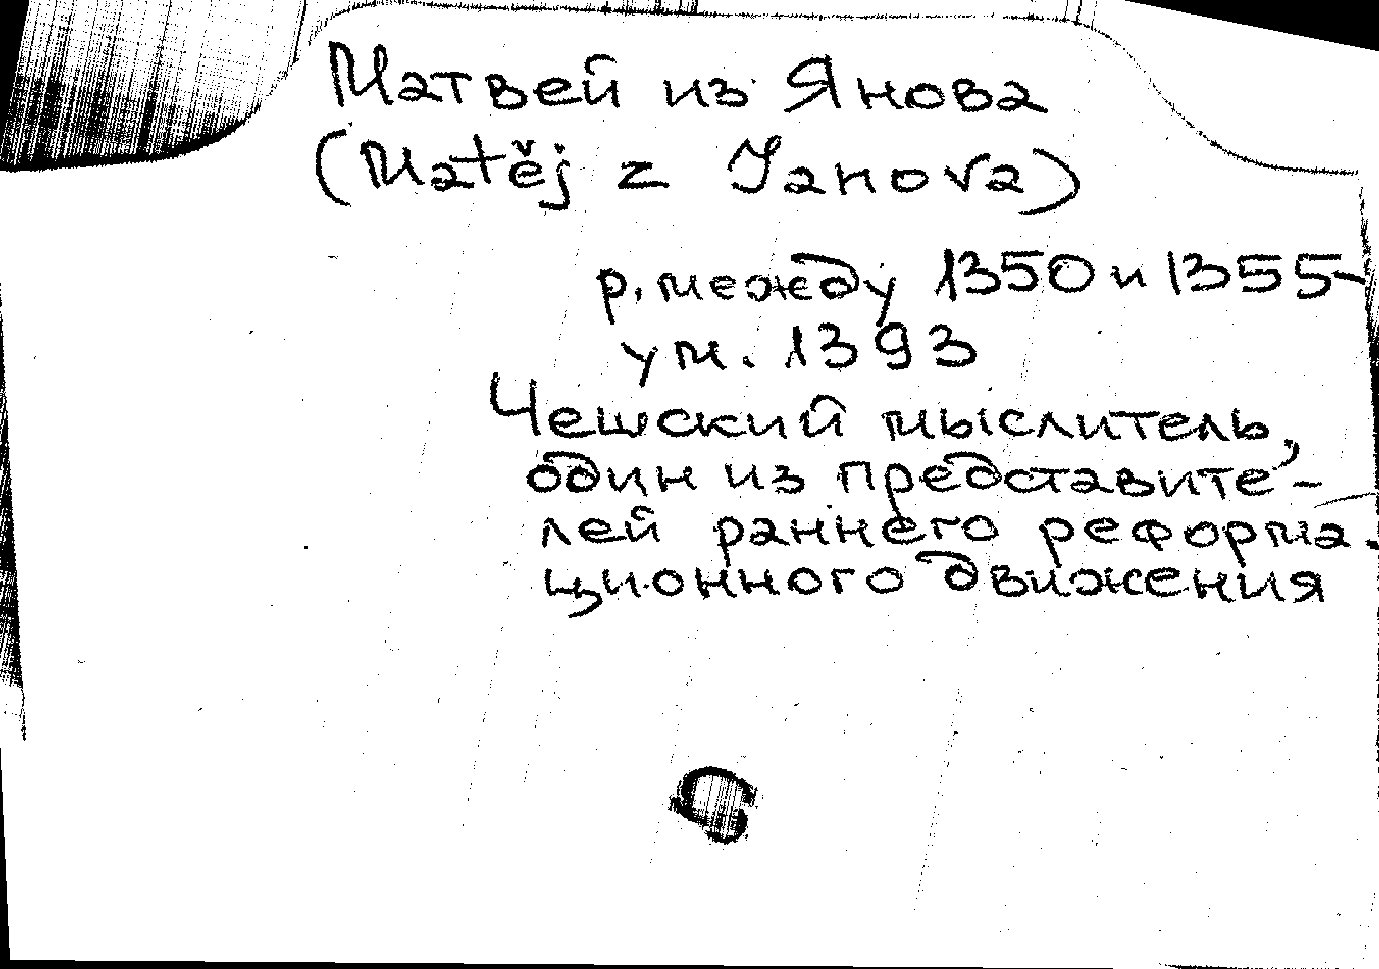 Матвей из Янова
(Matěj z Janova)
р. между 1350 и 1355-
ум. 1393
Чешский мыслитель,
один из представите-
лей раннего реформа-
ционного движения